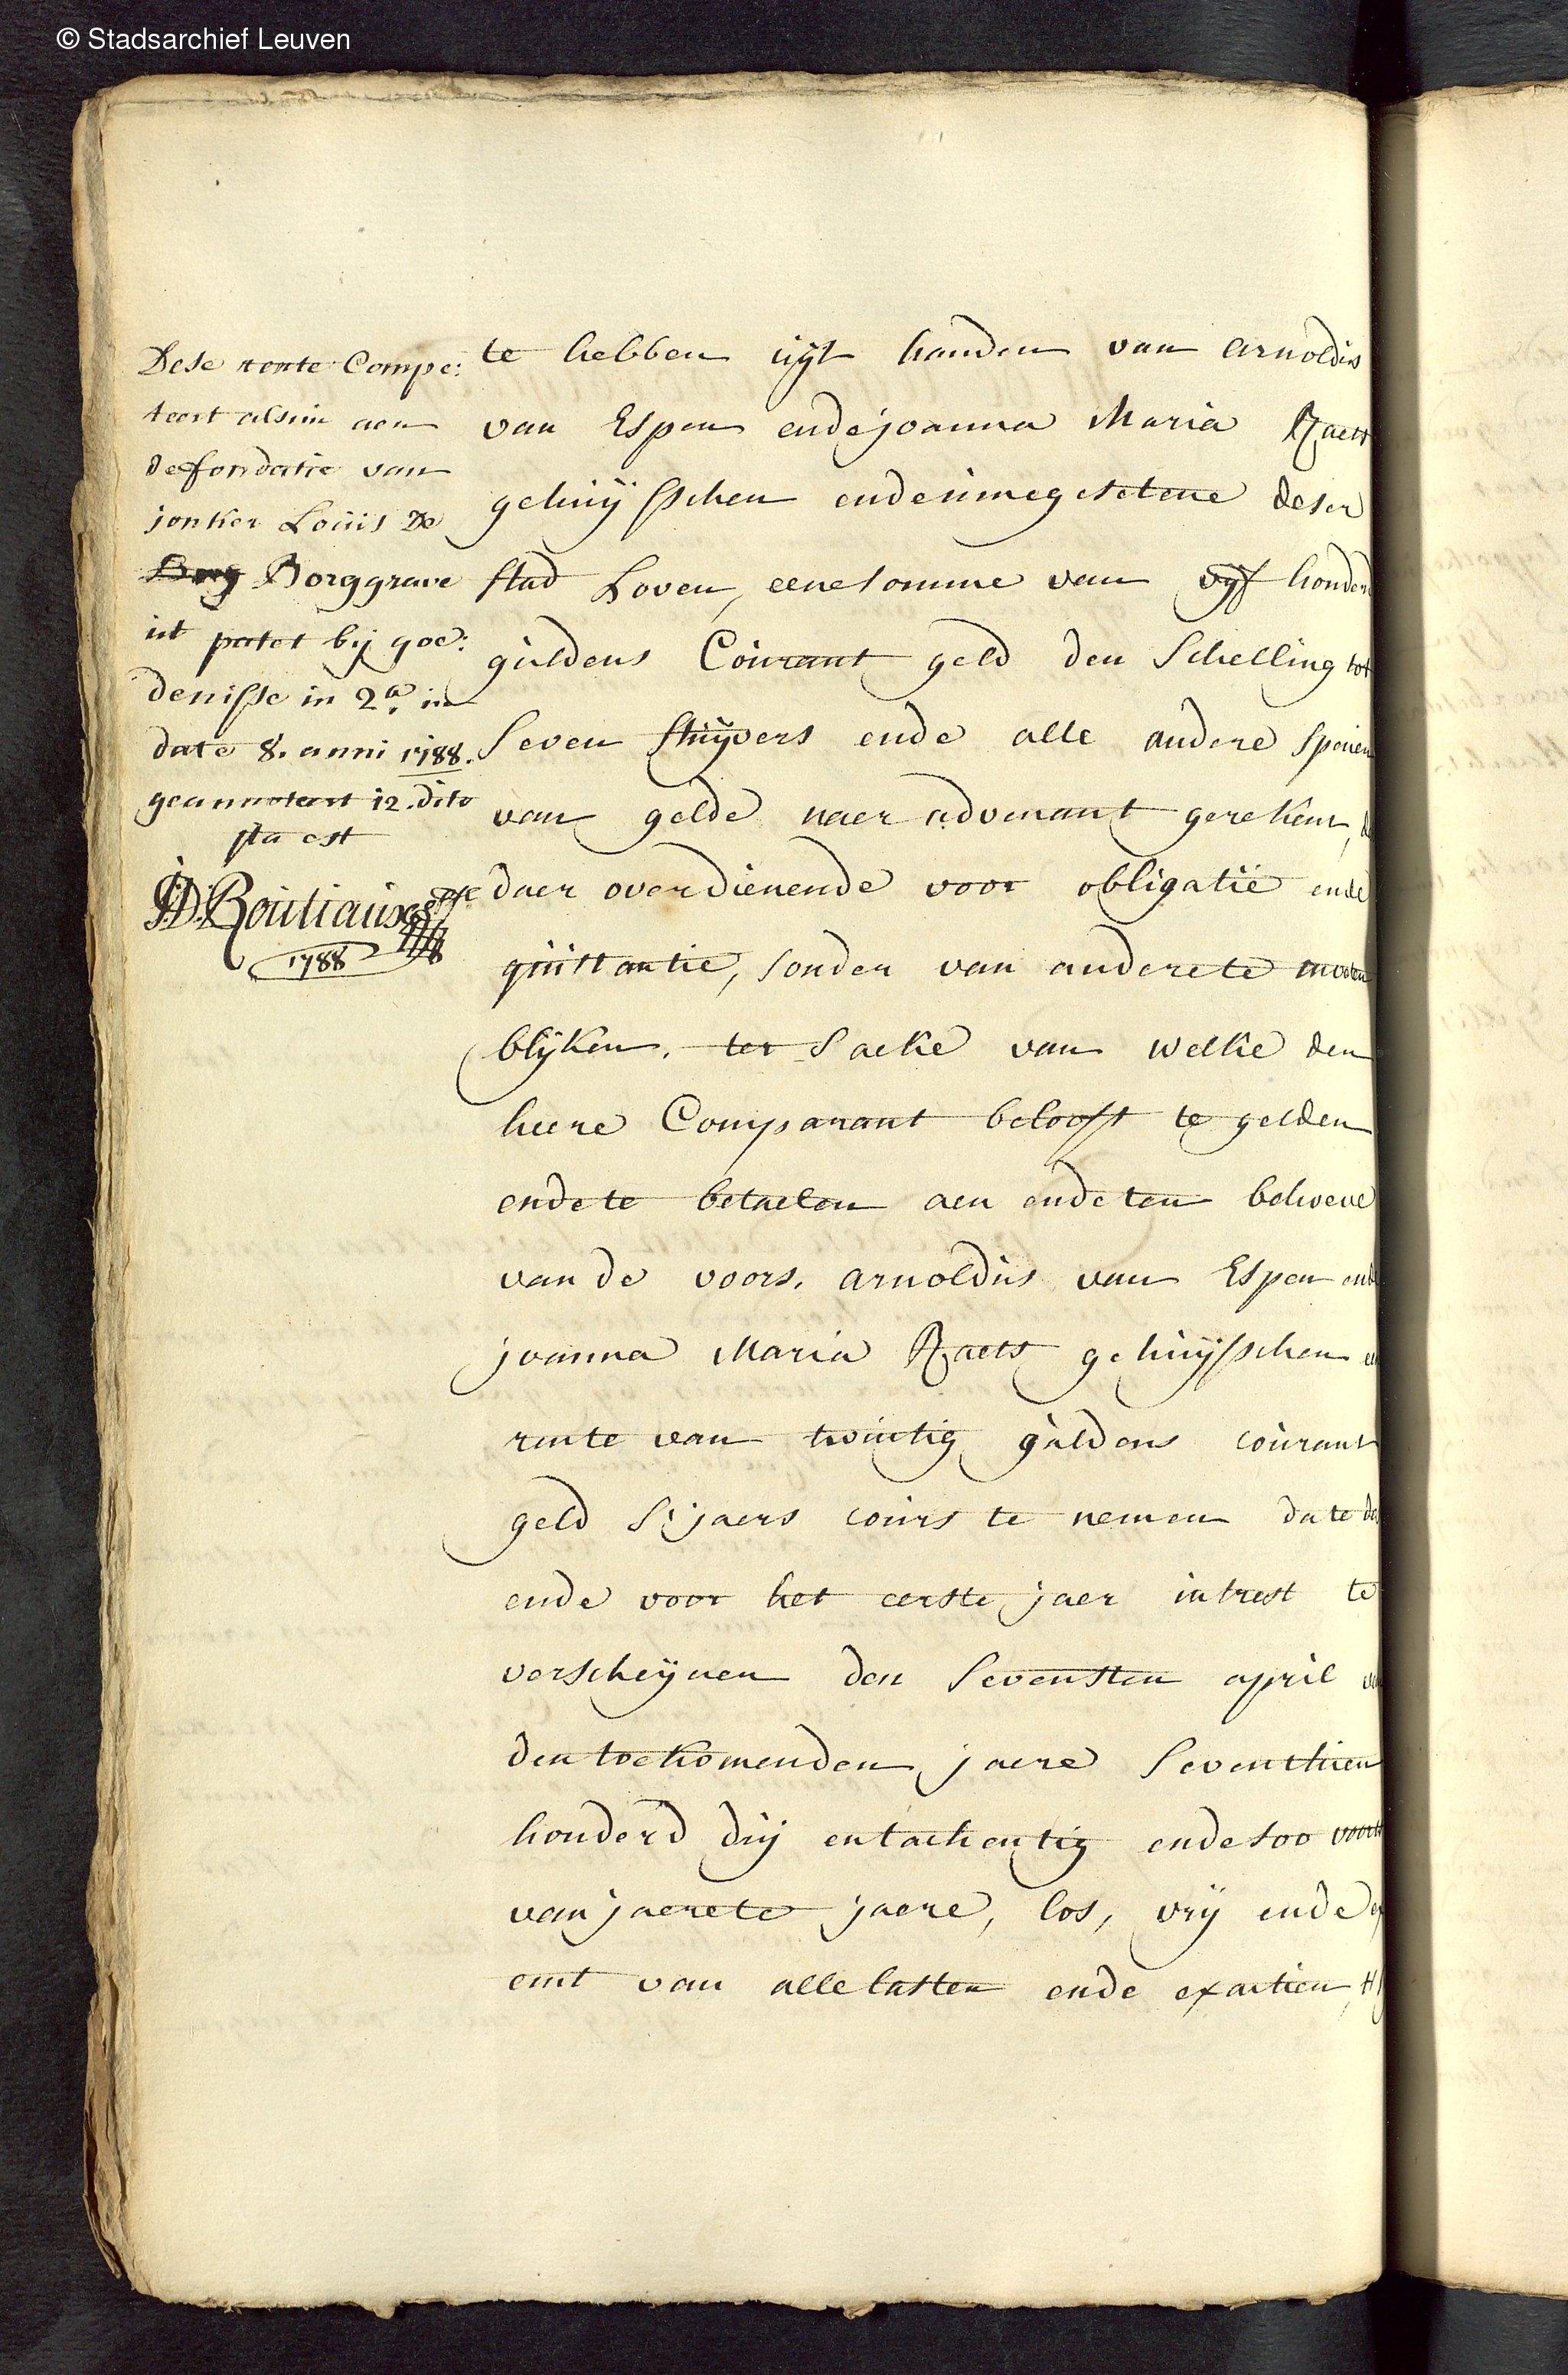 © Stadsarchief Leuven
Dese rente Compe:
teert alsnu aen
de fondatie van
jonker Louis De
Borggrave
ut patet bij goe:
denisse in 2a. in
date 8. anni 1788.
geannoteert 12. dito
ita est
J:D: Boutiaux
1788
te hebben uijt handen van arnoldus
van Espen ende joanna Maria Raets
gehuijsschen ende innegesetene deser
stad Loven, eene somme van vijf honderd
guldens Courant geld den Schelling tot
seven stuijvers ende alle andere spenien
van gelde naer advenant gerekent,
daer over dienende voor obligatie ende
quittantie, sonder van andere te moeten
blijken, ter saeke van welke den
heere Comparant belooft te gelden
ende te betaelen aen ende ten behoeve
van de voors. arnoldus van Espen ende
joanna Maria Raets gehuijsschen
rente van twintig guldens courant
geld s'jaers cours te nemen date
ende voor het eerste jaer intrest te
verscheijnen den sevensten april
den toekomenden jaere seventhien
honderd drij entachentig ende soo voorts
van jaere te jaere, los, vrij ende ex
emt van alle lasten ende exactien,